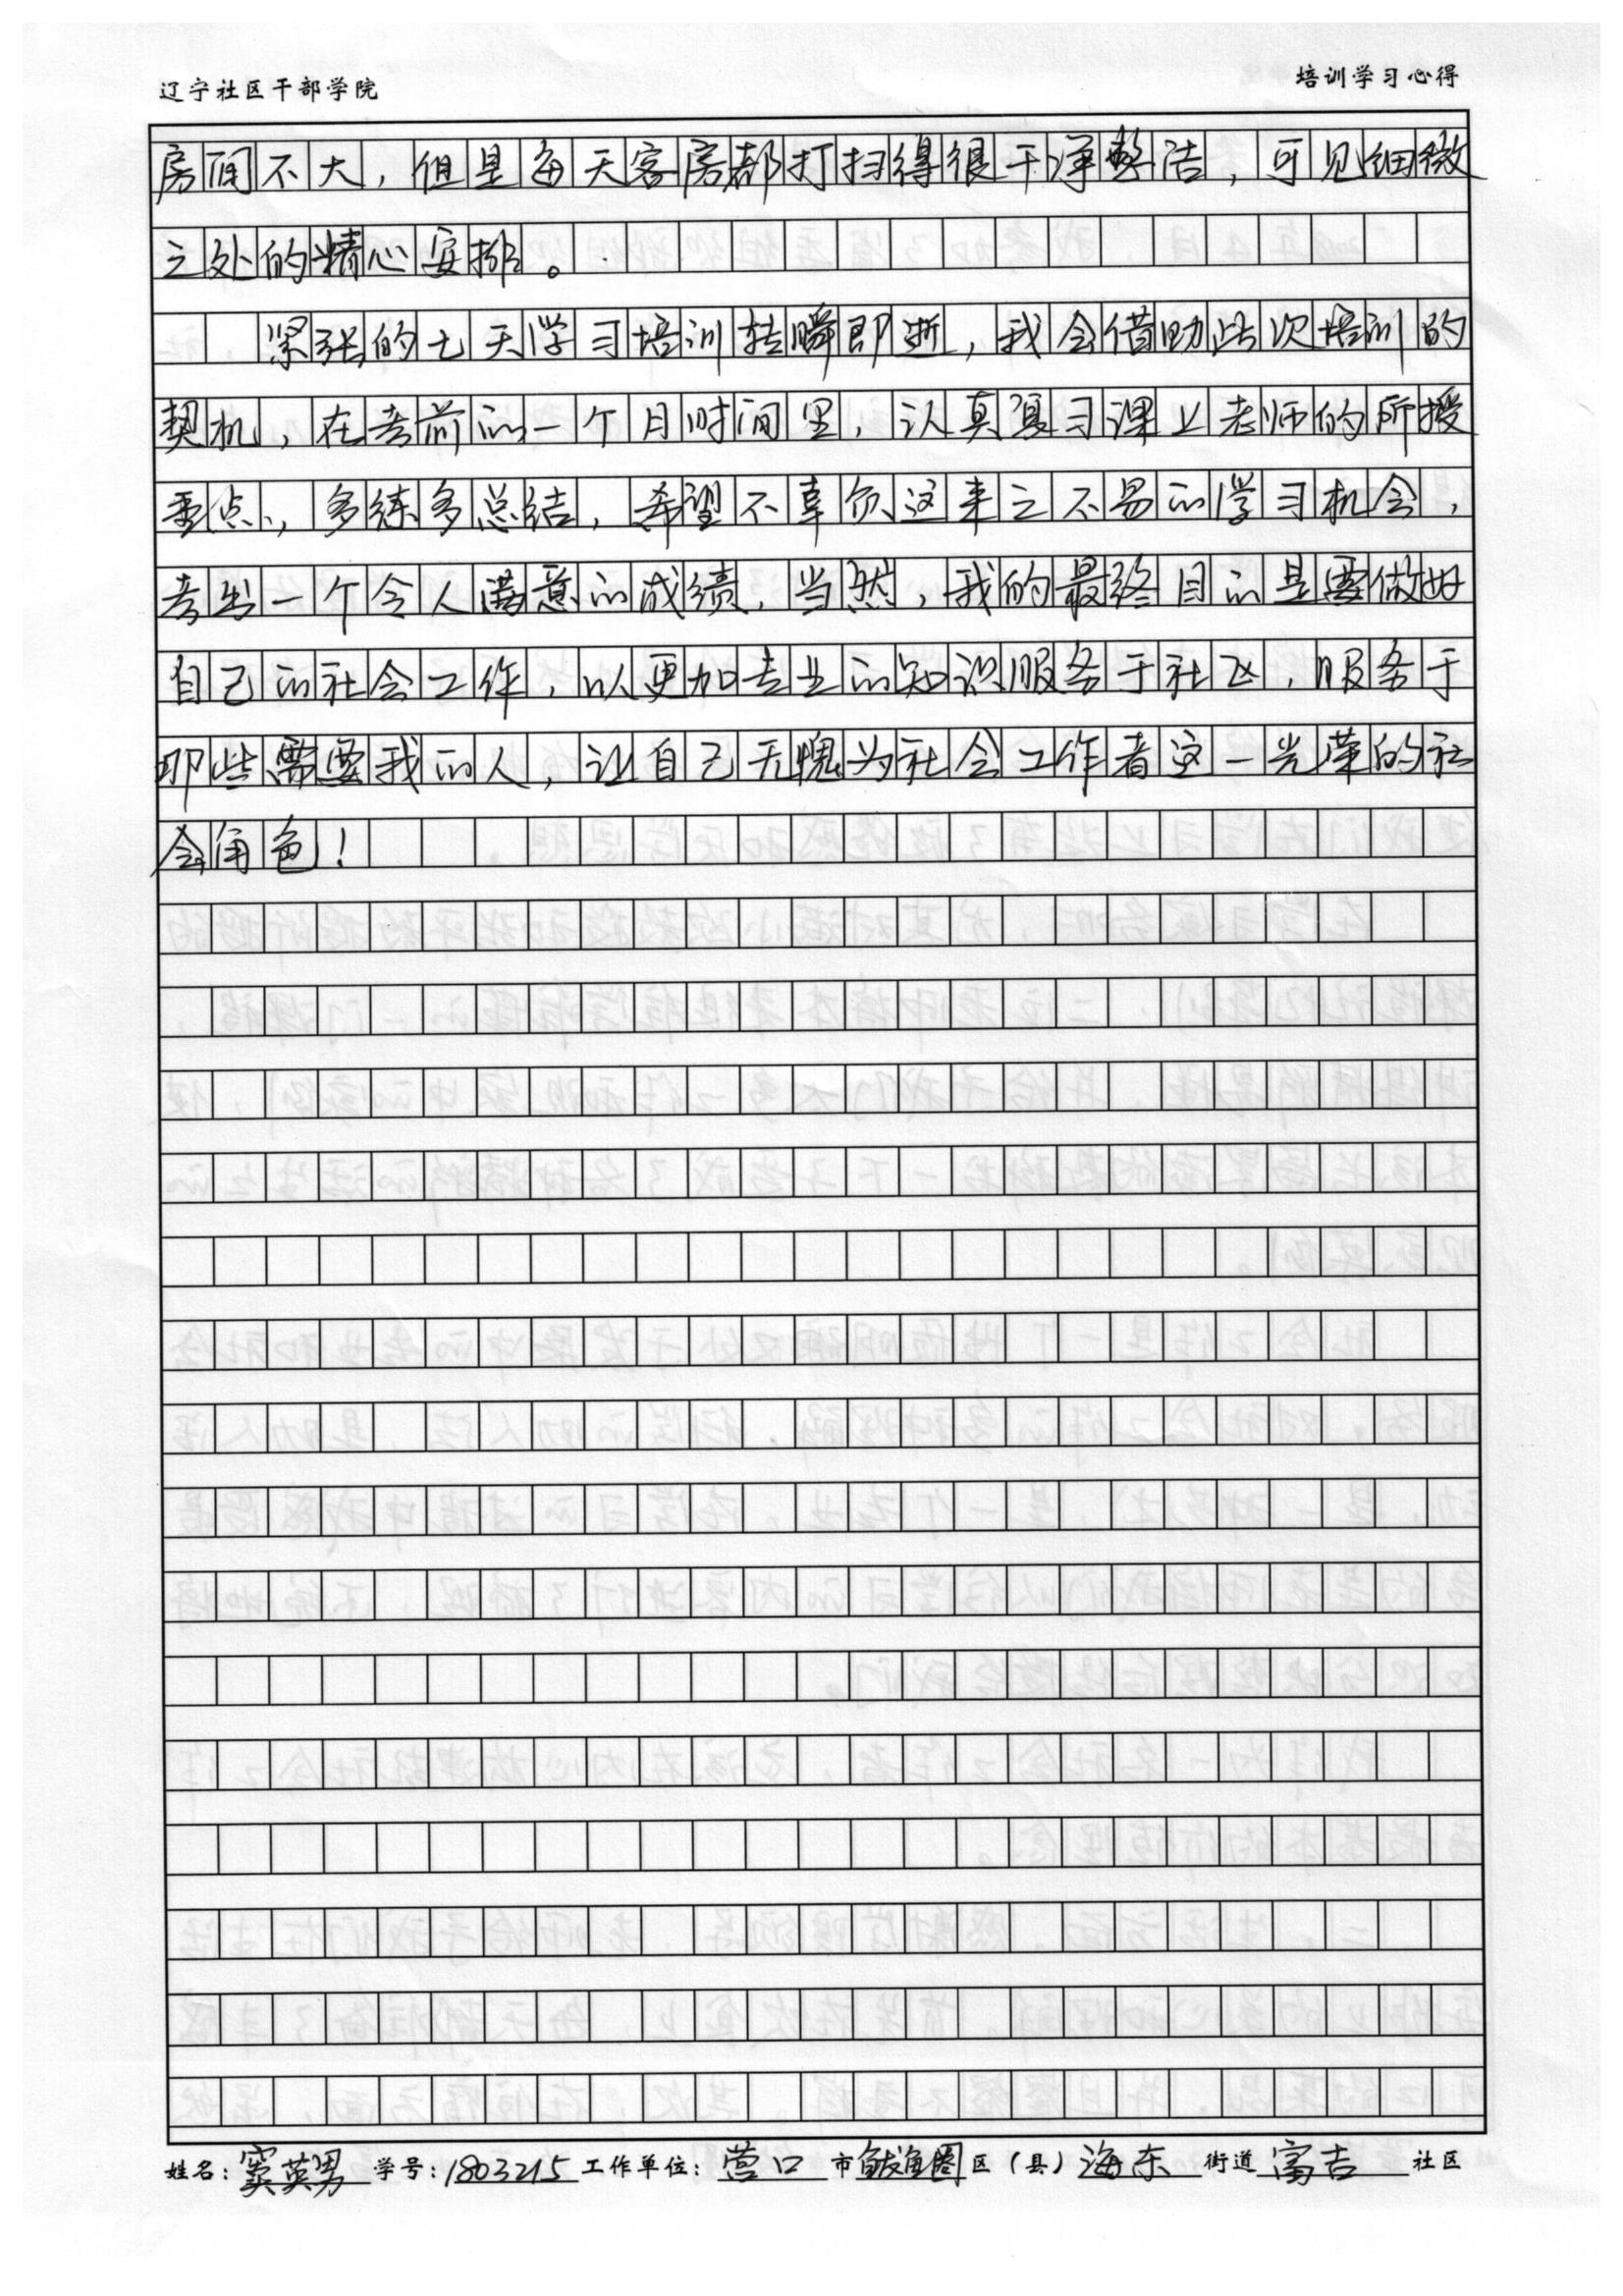 辽宁社区干部学院 培训学习心得
房间不大，但是每天客房都打扫得很干净整洁，可见细微
之处的精心安排。
紧张的七天学习培训转瞬即逝，我会借助此次培训的
契机，在考前的一个月时间里，认真复习课上老师的所授
重点，多练多总结，希望不辜负这来之不易的学习机会，
考出一个令人满意的成绩，当然，我的最终目的是要做好
自己的社会工作，以更加专业的知识服务于社区，服务于
那些需要我的人，让自己无愧为社会工作者这一光荣的社
会角色！
姓名：窦英男 学号：1803215 工作单位：营口市鲅鱼圈区（县）海东街道富吉社区